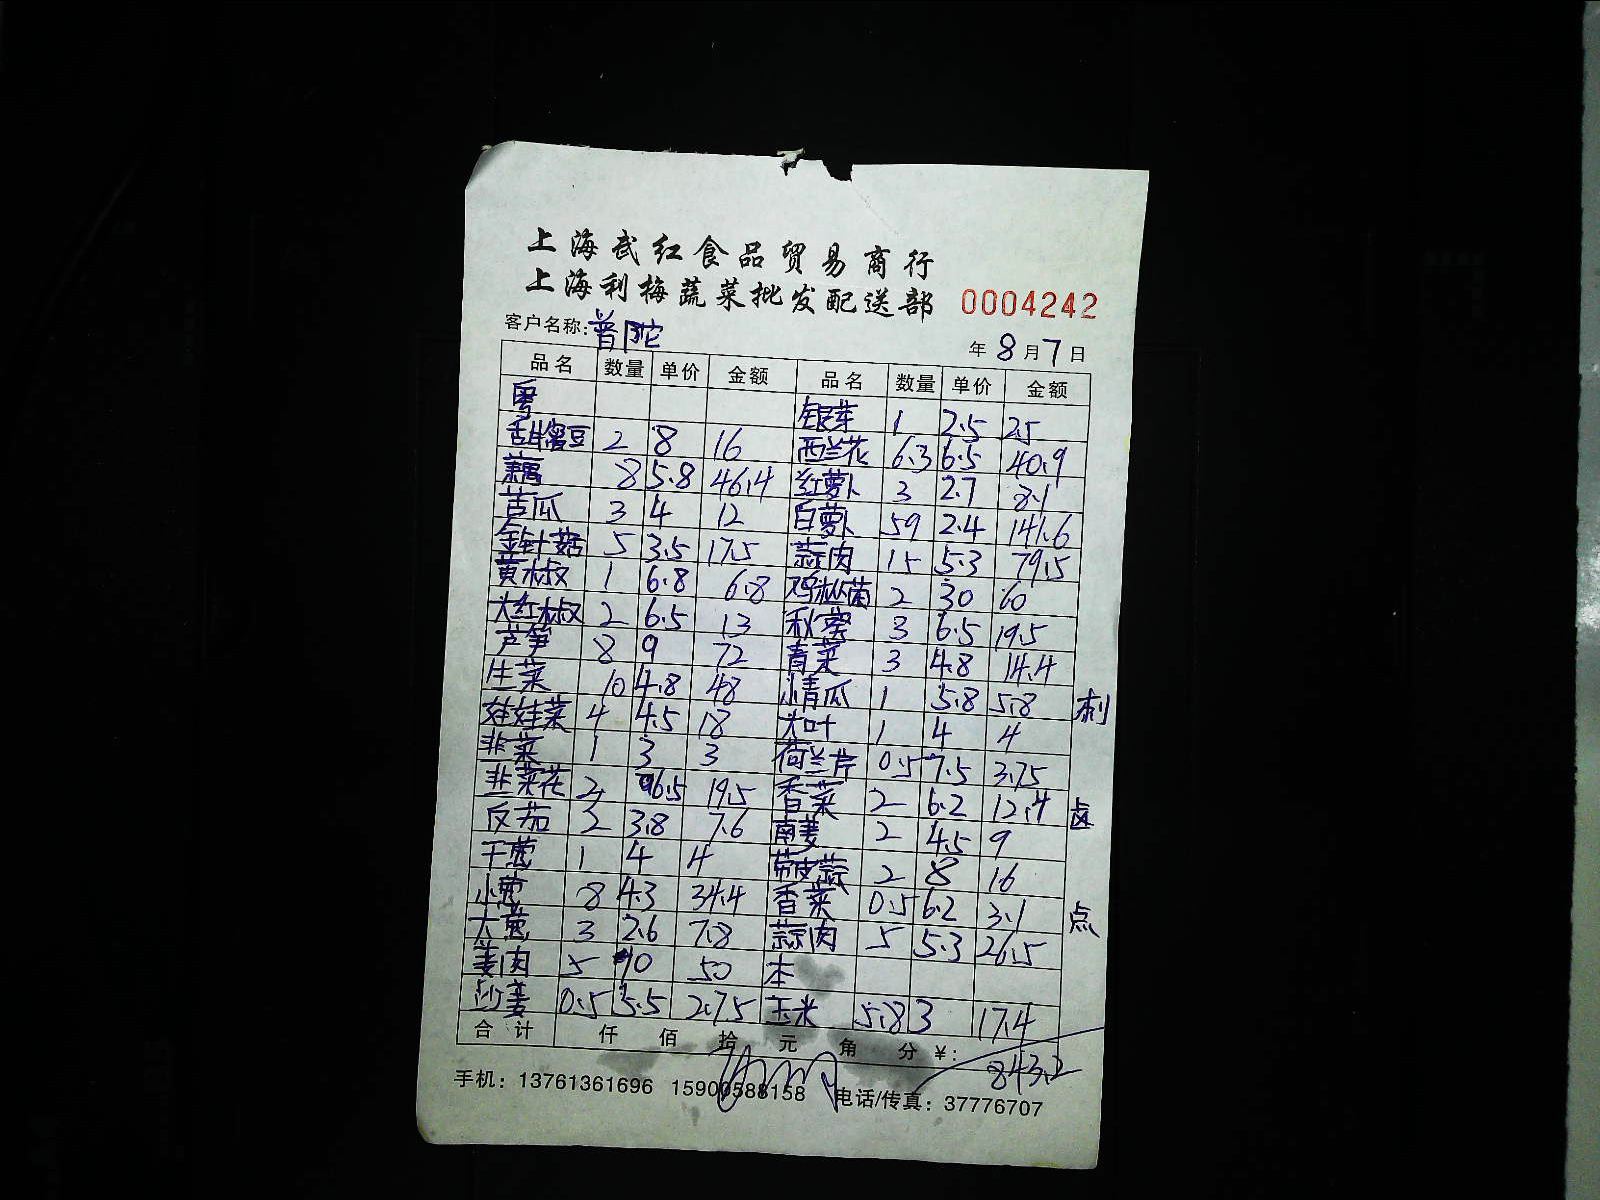 上海武红食品贸易商行
上海利梅蔬菜批发配送部 0004242
客户名称：普陀 年 8 月 7 日
品名 数量 单价 金额 品名 数量 单价 金额
粤 银芽 1 2.5 2.5
甜蜜豆 2 8 16 西兰花 6.3 6.5 40.9
藕 8 5.8 46.4 红萝卜 3 2.7 8.1
苦瓜 3 4 12 白萝卜 59 2.4 141.6
金针菇 5 3.5 17.5 蒜肉 15 5.3 79.5
黄椒 1 6.8 6.8 鸡枞菌 2 30 60
大红椒 2 6.5 13 秋葵 3 6.5 19.5
芦笋 8 9 72 青菜 3 4.8 14.4
生菜 10 4.8 48 小青瓜 1 5.8 5.8 刺
娃娃菜 4 4.5 18 大叶 1 4 4
韭菜 1 3 3 荷兰芹 0.5 7.5 3.75
韭菜花 2 6.5 19.5 香菜 2 6.2 12.4 卤
反茄 2 3.8 7.6 南姜 2 4.5 9
干葱 1 4 4 带皮蒜 2 8 16
小葱 8 4.3 34.4 香菜 0.5 6.2 3.1 点
大葱 3 2.6 7.8 蒜肉 5 5.3 26.5
姜肉 5 10 50 本
沙姜 0.5 5.5 2.75 玉米 5.8 3 17.4
合计 仟 佰 拾 元 角 分 ¥： 843.2
手机：13761361696 15900588158 电话/传真：37776707